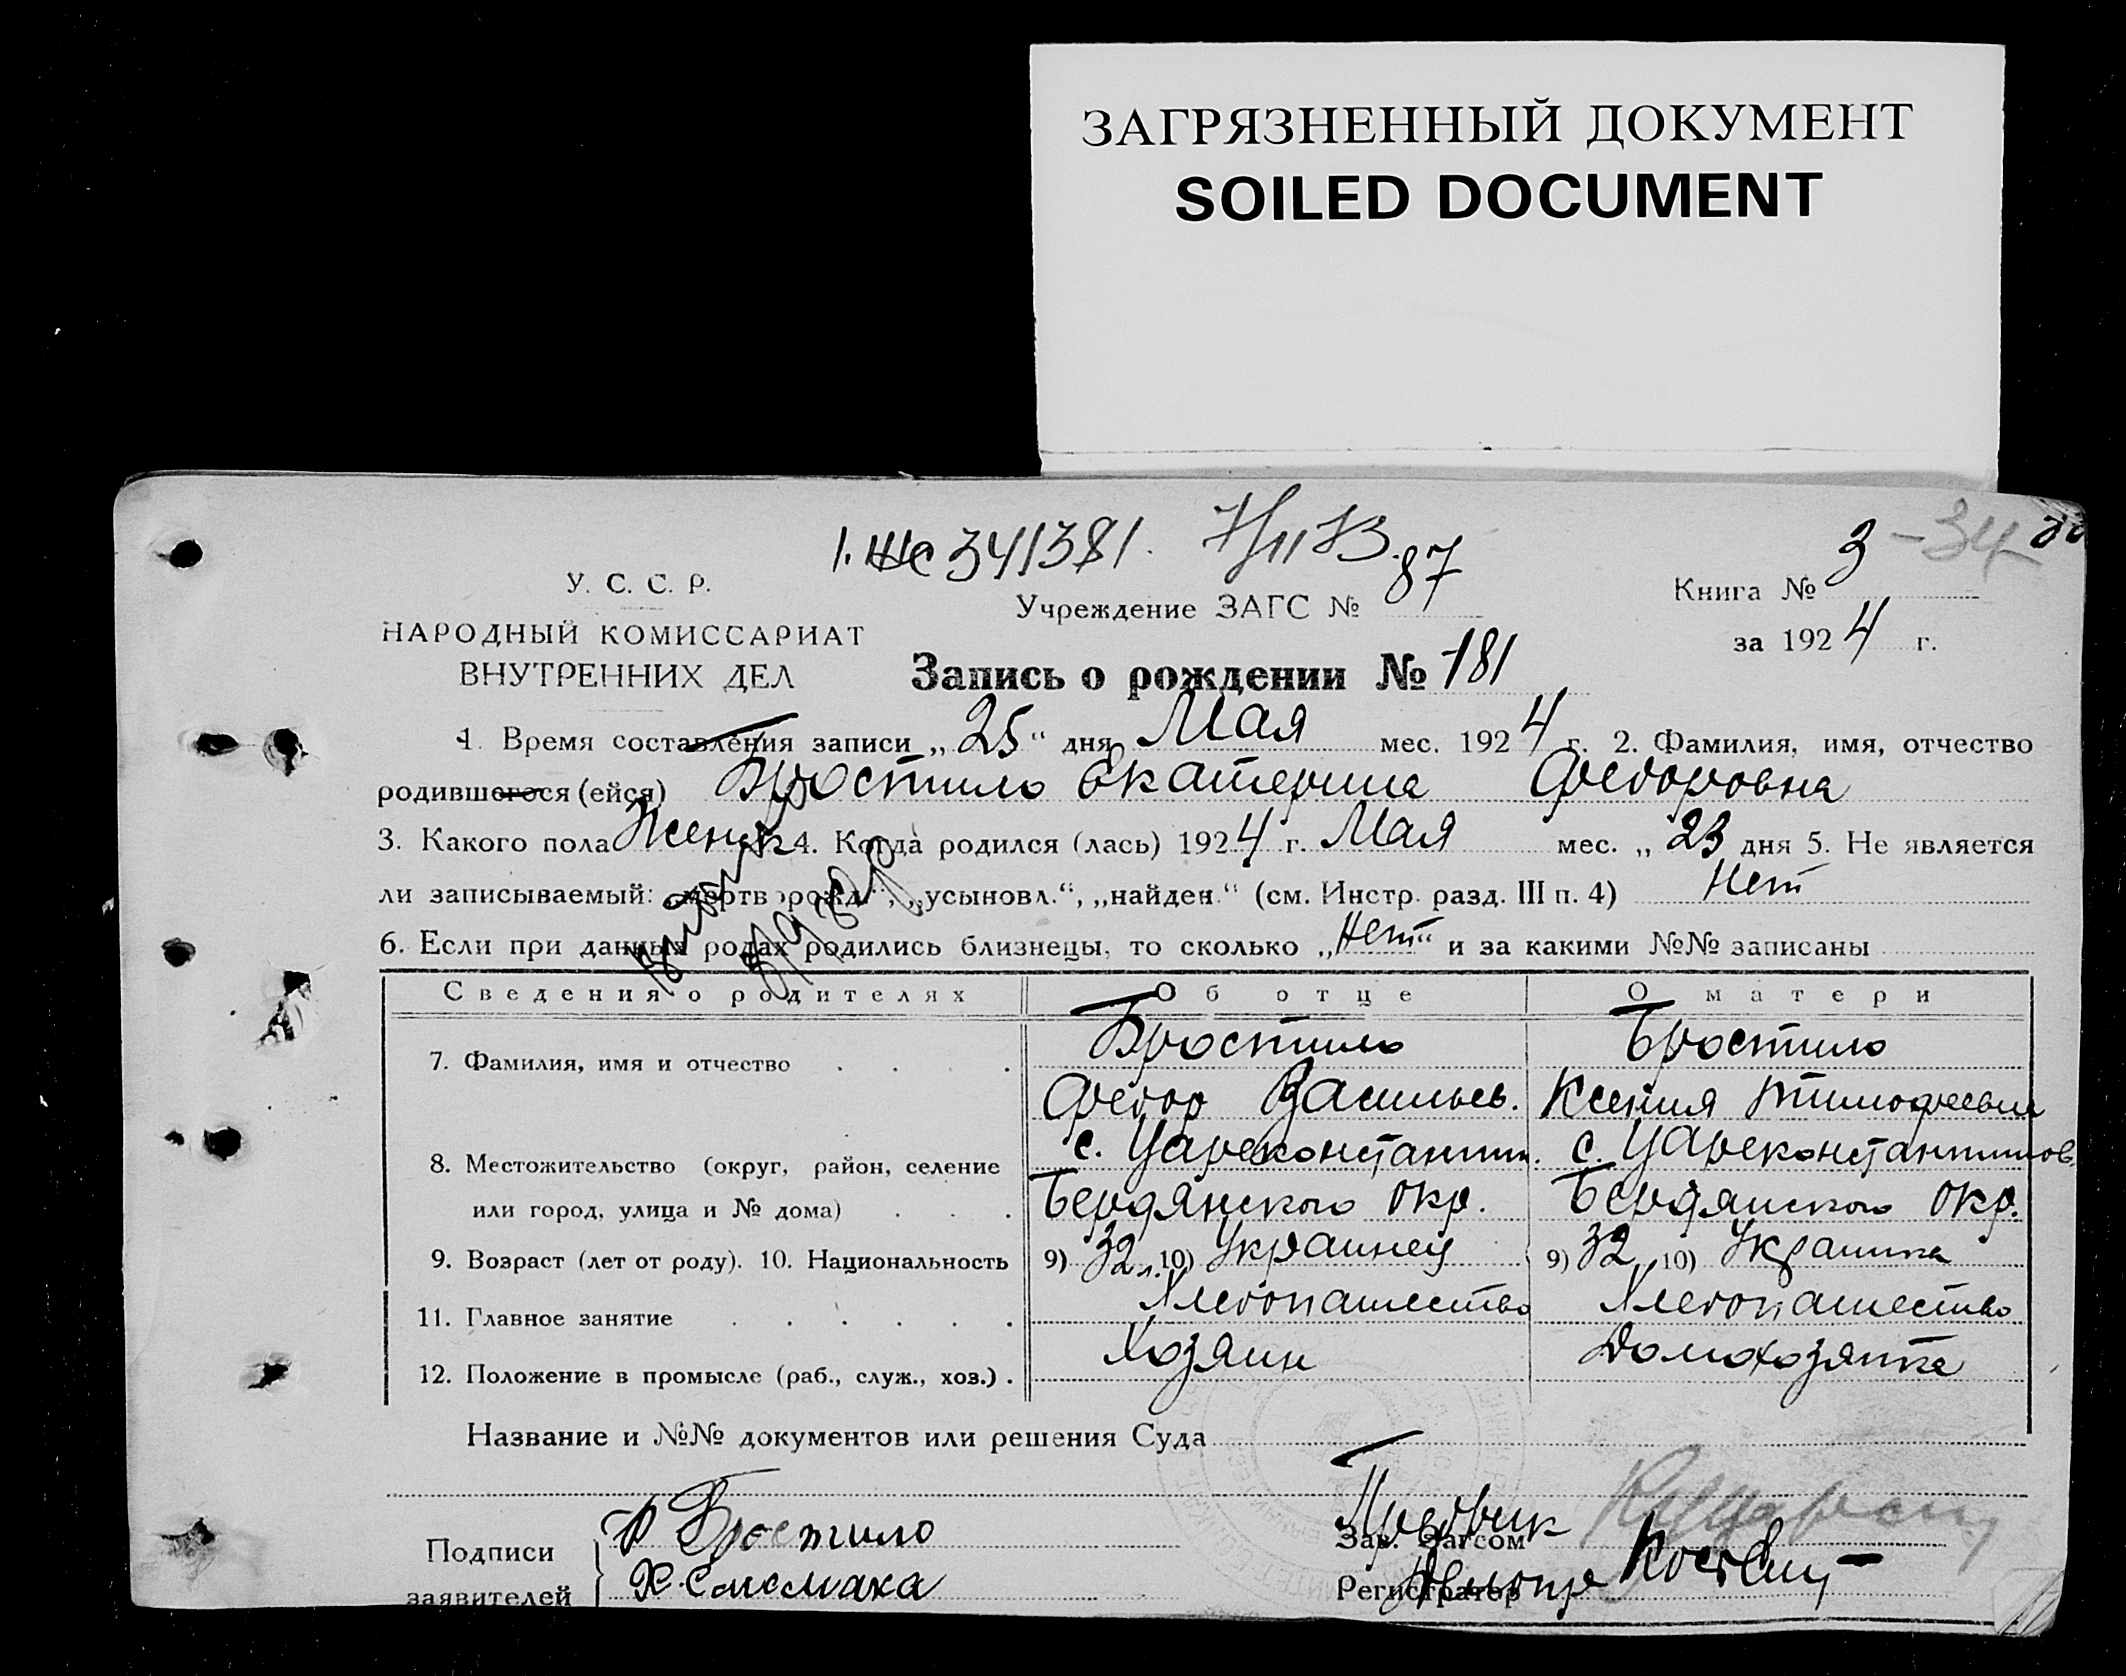 ЗАГРЯЗНЕННЫЙ ДОКУМЕНТ
SOILED DOCUMENT
1. ЖС 341381. 7/II 73
3 - 34
У. С. С. Р.
Учреждение ЗАГС № 87
Книга №
НАРОДНЫЙ КОМИССАРИАТ
за 1924 г.
ВНУТРЕННИХ ДЕЛ
Запись о рождении № 181
1. Время составления записи „25“ дня Мая мес. 1924 г. 2. Фамилия, имя, отчество
родившегося (ейся) Бростило Екатерина Федоровна
3. Какого пола Женск 4. Когда родился (лась) 1924 г. Мая мес. „23 дня 5. Не является
ли записываемый: „мертворожд“, „усыновл.“, „найден.“ (см. Инстр. разд. III п. 4) Нет
6. Если при данных родах родились близнецы, то сколько „Нет“ и за какими №№ записаны
Сведения о родителях Об отце О матери
Бростило Бростило
7. Фамилия, имя и отчество
Федор Васильев. Ксения Тимофеевна
с. Цареконстантин. с. Цареконстантинов.
8. Местожительство (округ, район, селение
или город, улица и № дома) Бердянского окр. Бердянского окр.
9. Возраст (лет от роду). 10. Национальность 9) 32 л. 10) Украинец 9) 32 10) Украинка
Хлебопашество Хлебопашество
11. Главное занятие
Хозяин Домохозяйка
12. Положение в промысле (раб., служ., хоз.)
Название и №№ документов или решения Суда
Подписи Ф Бростило
Зав. Загсом
заявителей Х.
Регистратор